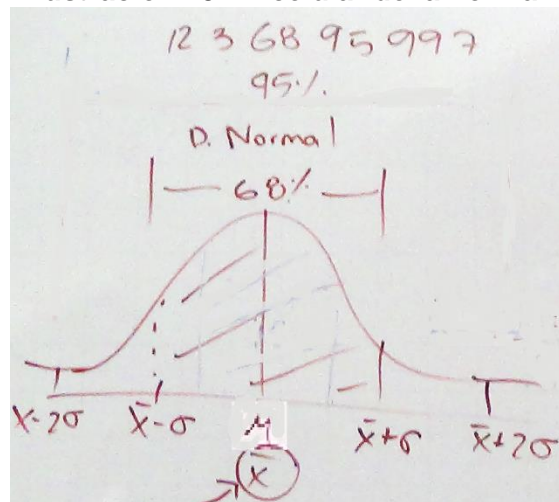 12 3 68 95 997
95%
D. Normal
68%
x-2σ x̄-σ μ x̄+σ x̄+2σ
x̄